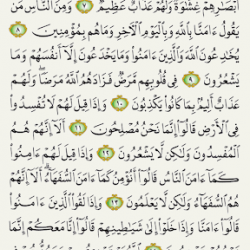 أَبْصَٰرِهِمْ غِشَٰوَةٌ وَلَهُمْ عَذَابٌ عَظِيمٌ ٧ وَمِنَ النَّاسِ مَن
يَقُولُ ءَامَنَّا بِاللَّهِ وَبِالْيَوْمِ الْآخِرِ وَمَا هُم بِمُؤْمِنِينَ ٨
يُخَٰدِعُونَ اللَّهَ وَالَّذِينَ ءَامَنُوا وَمَا يَخْدَعُونَ إِلَّا أَنفُسَهُمْ وَمَا
يَشْعُرُونَ ٩ فِي قُلُوبِهِم مَّرَضٌ فَزَادَهُمُ اللَّهُ مَرَضًا وَلَهُمْ
عَذَابٌ أَلِيمٌ بِمَا كَانُوا يَكْذِبُونَ ١٠ وَإِذَا قِيلَ لَهُمْ لَا تُفْسِدُوا
فِي الْأَرْضِ قَالُوا إِنَّمَا نَحْنُ مُصْلِحُونَ ١١ أَلَا إِنَّهُمْ هُمُ
الْمُفْسِدُونَ وَلَٰكِن لَّا يَشْعُرُونَ ١٢ وَإِذَا قِيلَ لَهُمْ ءَامِنُوا
كَمَا ءَامَنَ النَّاسُ قَالُوا أَنُؤْمِنُ كَمَا ءَامَنَ السُّفَهَاءُ أَلَا إِنَّهُمْ
هُمُ السُّفَهَاءُ وَلَٰكِن لَّا يَعْلَمُونَ ١٣ وَإِذَا لَقُوا الَّذِينَ ءَامَنُوا
قَالُوا ءَامَنَّا وَإِذَا خَلَوْا إِلَىٰ شَيَٰطِينِهِمْ قَالُوا إِنَّا مَعَكُمْ إِنَّمَا